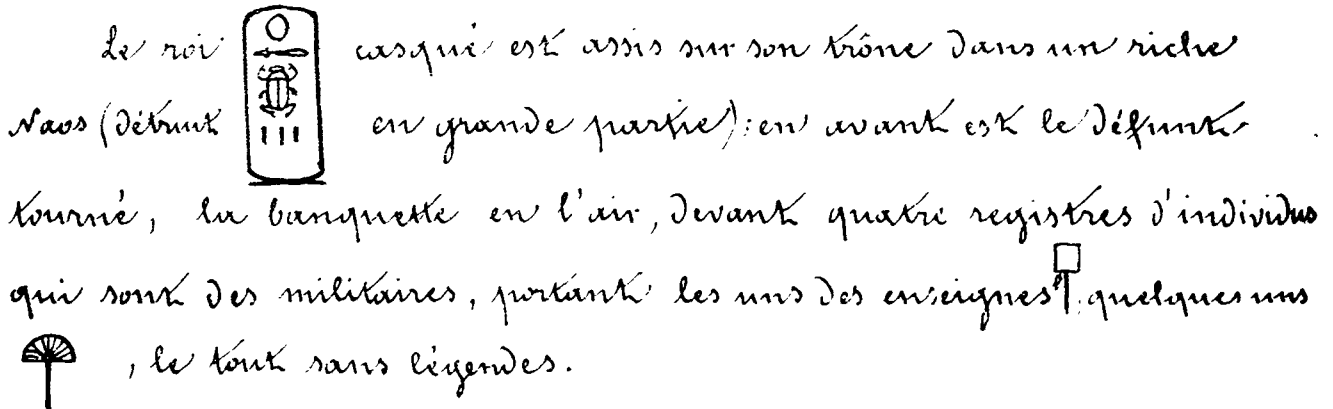 Le roi casqué est assis sur son trône dans un riche
Naos (détruit en grande partie): en avant est le défunt
tourné, la banquette en l'air, devant quatre registres d'individus
qui sont des militaires, portant les uns des enseignes, quelques uns
, le tout sans légendes.